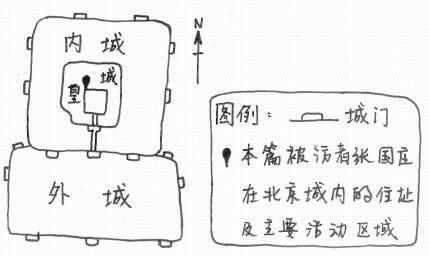 内城
N
皇城
外城
图例： 城门
本篇被访者张国庄
在北京城内的住址
及主要活动区域